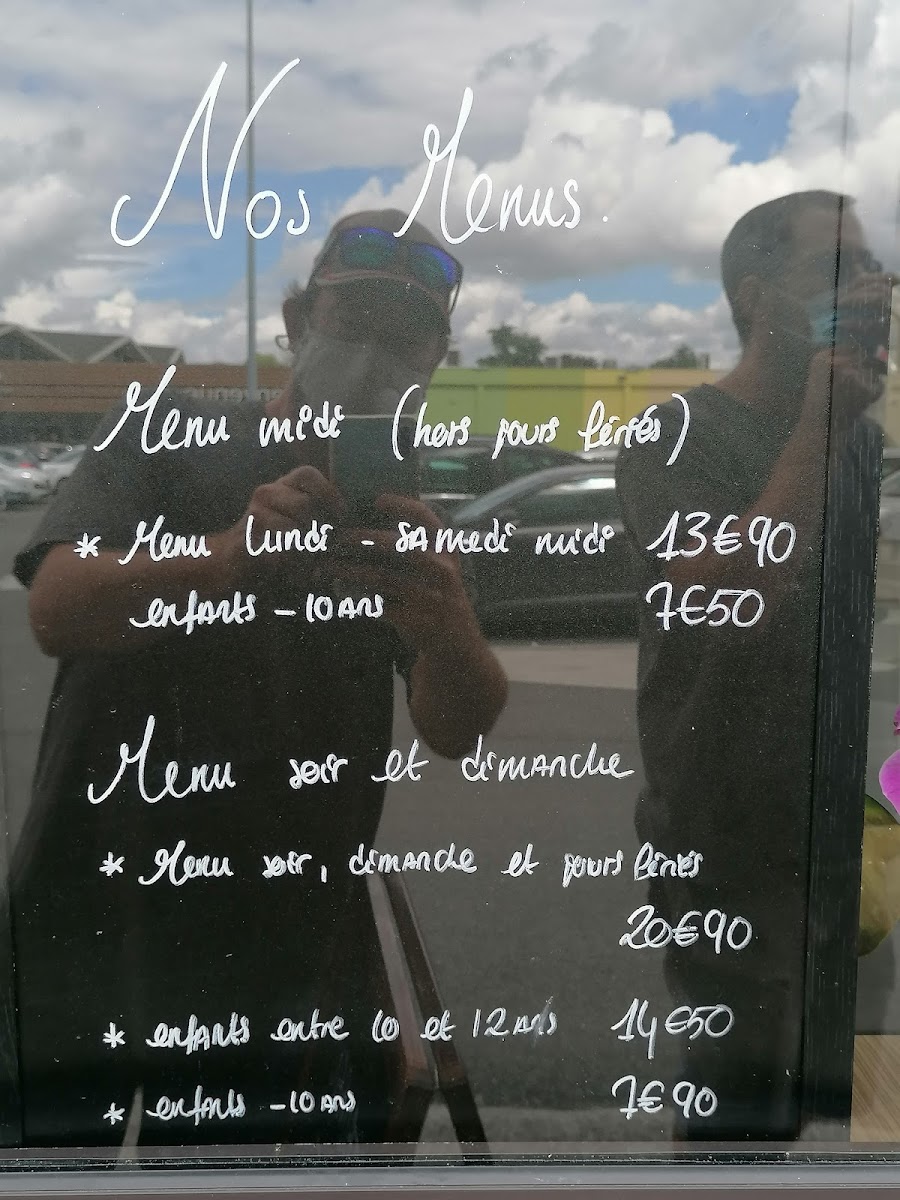 Nos Menus.
Menu midi (hors jours fériés)
* Menu lundi - samedi midi 13€90
enfants - 10 ans 7€50
Menu soir et dimanche
* Menu soir, dimanche et jours fériés
20€90
* enfants entre 10 et 12 ans 14€50
* enfants - 10 ans 7€90